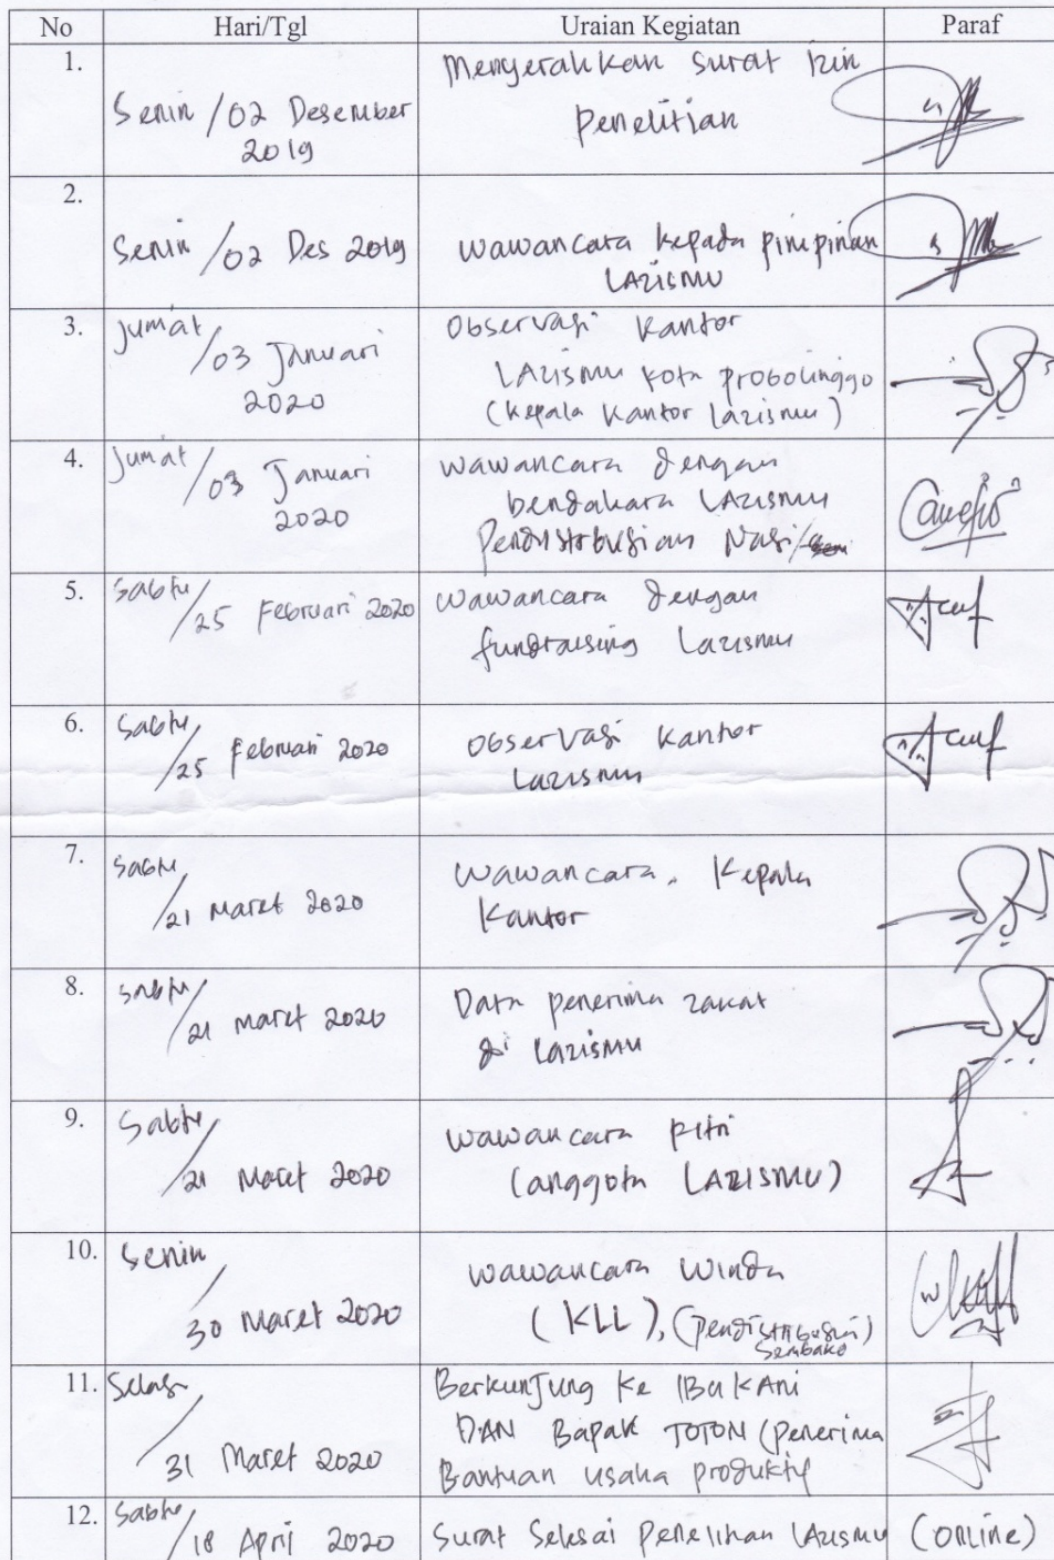 No Hari/Tgl Uraian Kegiatan Paraf
1. Senin / 02 Desember 2019
Menyerahkan surat izin
Penelitian
2. Senin / 02 Des 2019
wawancara kepada pimpinan
LAZISMU
3. Jumat / 03 Januari 2020
Observasi Kantor
LAZISMU Kota probolinggo
(Kepala Kantor lazismu)
4. Jumat / 03 Januari 2020
wawancara dengan
bendahara LAZISMU
Pendistribusian Nasi/
5. Sabtu / 25 Februari 2020
wawancara dengan
fundraising Lazismu
6. Sabtu / 25 Februari 2020
Observasi Kantor
Lazismu
7. Sabtu / 21 Maret 2020
wawancara. Kepala
Kantor
8. Sabtu / 21 Maret 2020
Data penerima zakat
di Lazismu
9. Sabtu / 21 Maret 2020
wawancara Fitri
(anggota LAZISMU)
10. Senin / 30 Maret 2020
wawancara Winda
(KLL), (pendistribusi)
Sembako
11. Selasa / 31 Maret 2020
Berkunjung Ke IBu KAni
DAN Bapak TOTON (Penerima
Bantuan usaha produktif
12. Sabtu / 18 April 2020
Surat Selesai Penelitian LAZISMU (Online)